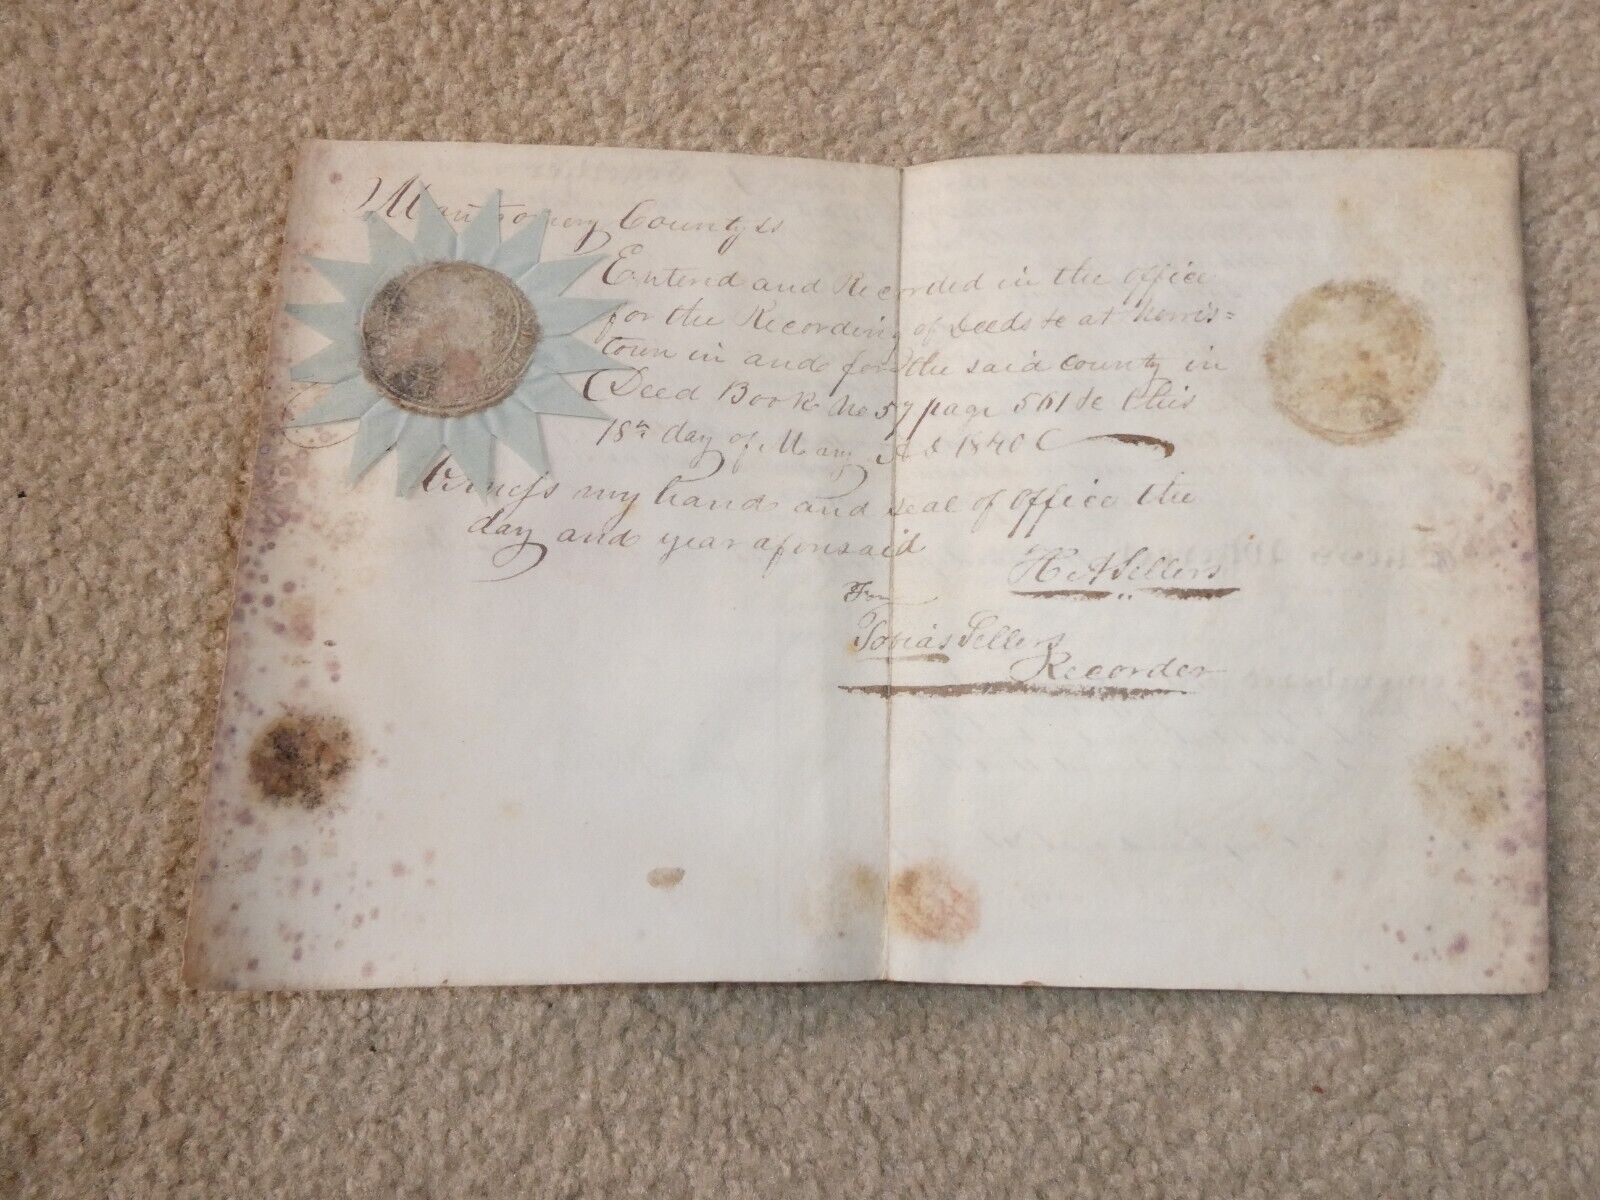 Montgomery County ss
Entered and Recorded in the Office
for the Recording of Deeds &c at Norris=
town in and for the said County in
Deed Book No 57 page 561 &c this
18th day of May AD 1840
Witness my hand and seal of Office the
day and year aforesaid
H A Sellers
For
Tobias Sellers
Recorder